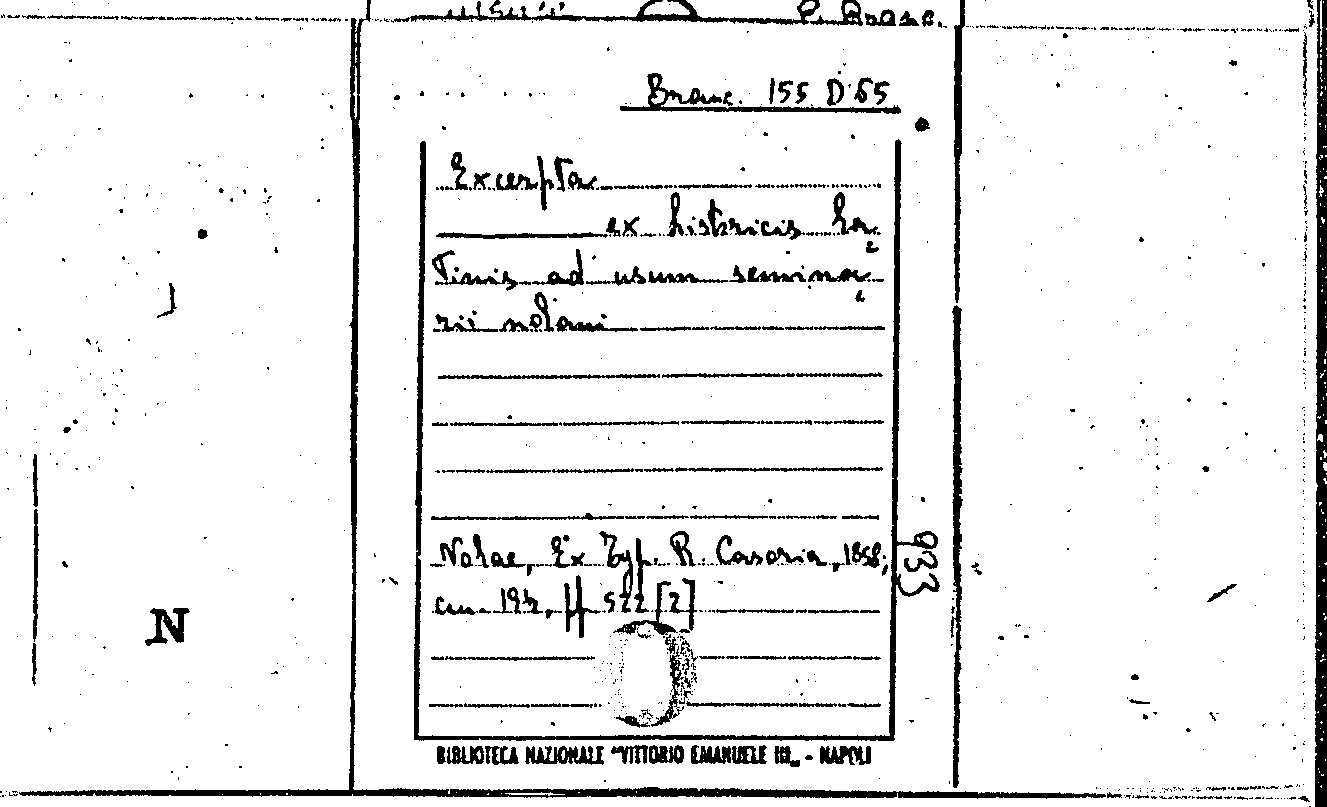 Branc. 155 D 65
Excerpta
ex historicis la=
tinis ad usum semina=
rii nolani
Nolae, Ex Typ. R. Casoria, 1858;
cm. 19½, pp 522 [2]
933
N
BIBLIOTECA NAZIONALE "VITTORIO EMANUELE III„ - NAPOLI